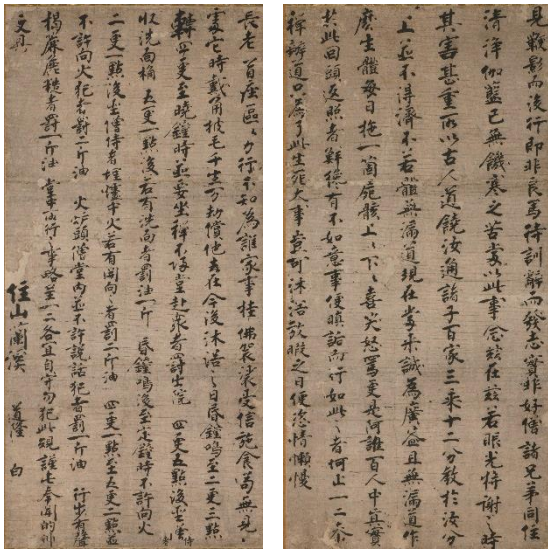 見鞭影而後行即非良馬待訓辭而發志實非好僧諸兄弟同住
清淨伽藍已無饑寒之苦當以此事念茲在茲若眼光將謝之時
其害甚重所以古人道饒汝通諸子百家三乘十二分教於汝分
上並不得濟不若體無漏道現在當來誠為廣益且無漏道作
麼生體每日拖一箇死骸上々下々喜笑怒罵更是阿誰百人中真實
於此回頭返照者鮮纔有不如意事便瞋詬而行如此之者何止一二參
禪辦道只為了此生死大事豈可沐浴放暇之日便恣情懶慢
長老首座區々力行不知為誰家事挂佛袈裟受信施食苟無見
處它時戴角披毛千生万劫償他去在今後沐浴之日昏鐘鳴至二更三點
轉寮四更至曉鐘時並要坐禪不歸堂赴衆者罰出院 四更五點後聖僧侍者
收洗面桶 五更一點後若有洗面者罰油一斤 昏鐘鳴後至定鐘時不許向火
二更一點後聖僧侍者埋爐中火若有開向之者罰一斤油 四更一點至五更二點並
不許向火犯者罰一斤油 火爐頭僧堂內並不許說話犯者罰一斤油 行步有聲
揭簾麁糙者罰一斤油 堂中所行之事略呈一二各宜自守勿犯此規謹七條例的非
文具
住山蘭溪 道隆 白